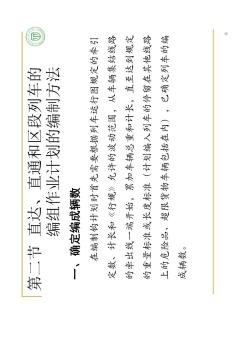 第二节 直达、直通和区段列车的
编组作业计划的编制方法
一、确定编成辆数
在编制钩计划时首先需要根据列车运行图规定的牵引
定数、计长和《行规》允许的波动范围，从车辆集结线路
的牵出线一端开始，累加车辆总重和计长，直至达到规定
的重量标准或长度标准（计划编入列车的停留在其他线路
上的危险品、超限货物车辆包括在内），已确定列车的编
成辆数。